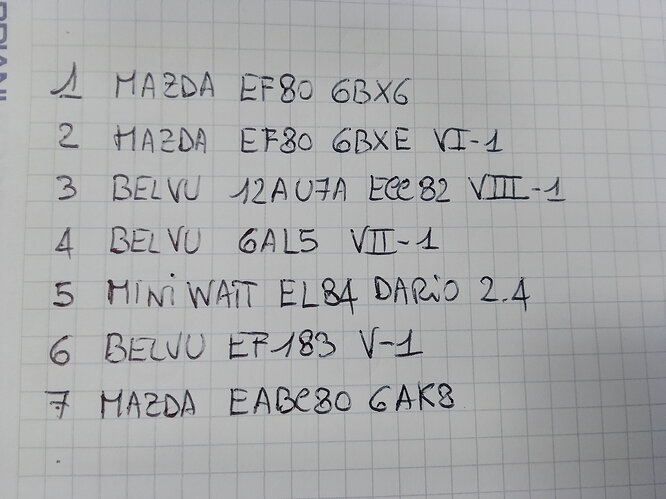 1 MAZDA EF80 6BX6
2 MAZDA EF80 6BXE VI-1
3 BELVU 12AU7A ECC82 VIII-1
4 BELVU 6AL5 VII-1
5 MINIWATT EL84 DARIO 2.4
6 BELVU EF183 V-1
7 MAZDA EABC80 6AK8